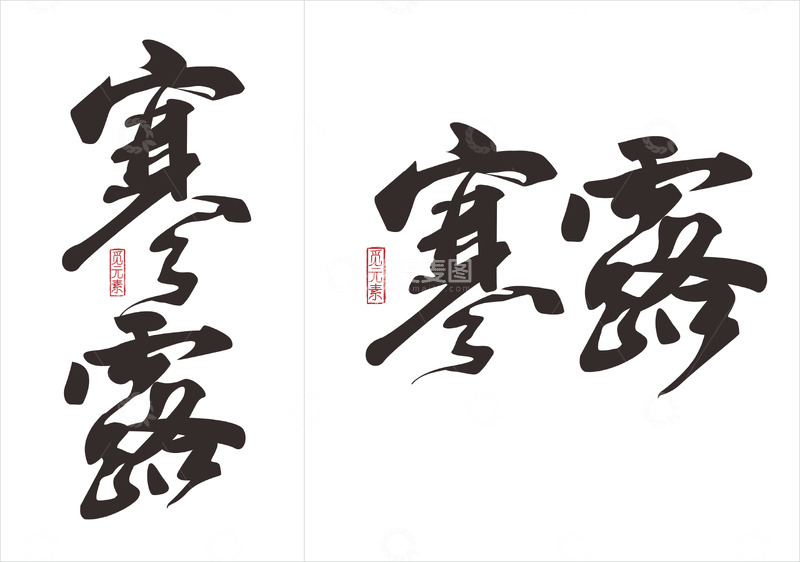 寒
露
觅元素
寒露
觅元素